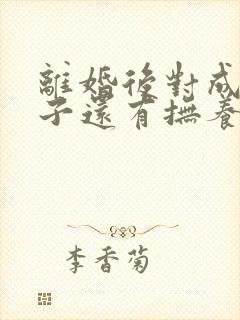 離婚後對成
子還有撫養
李香菊